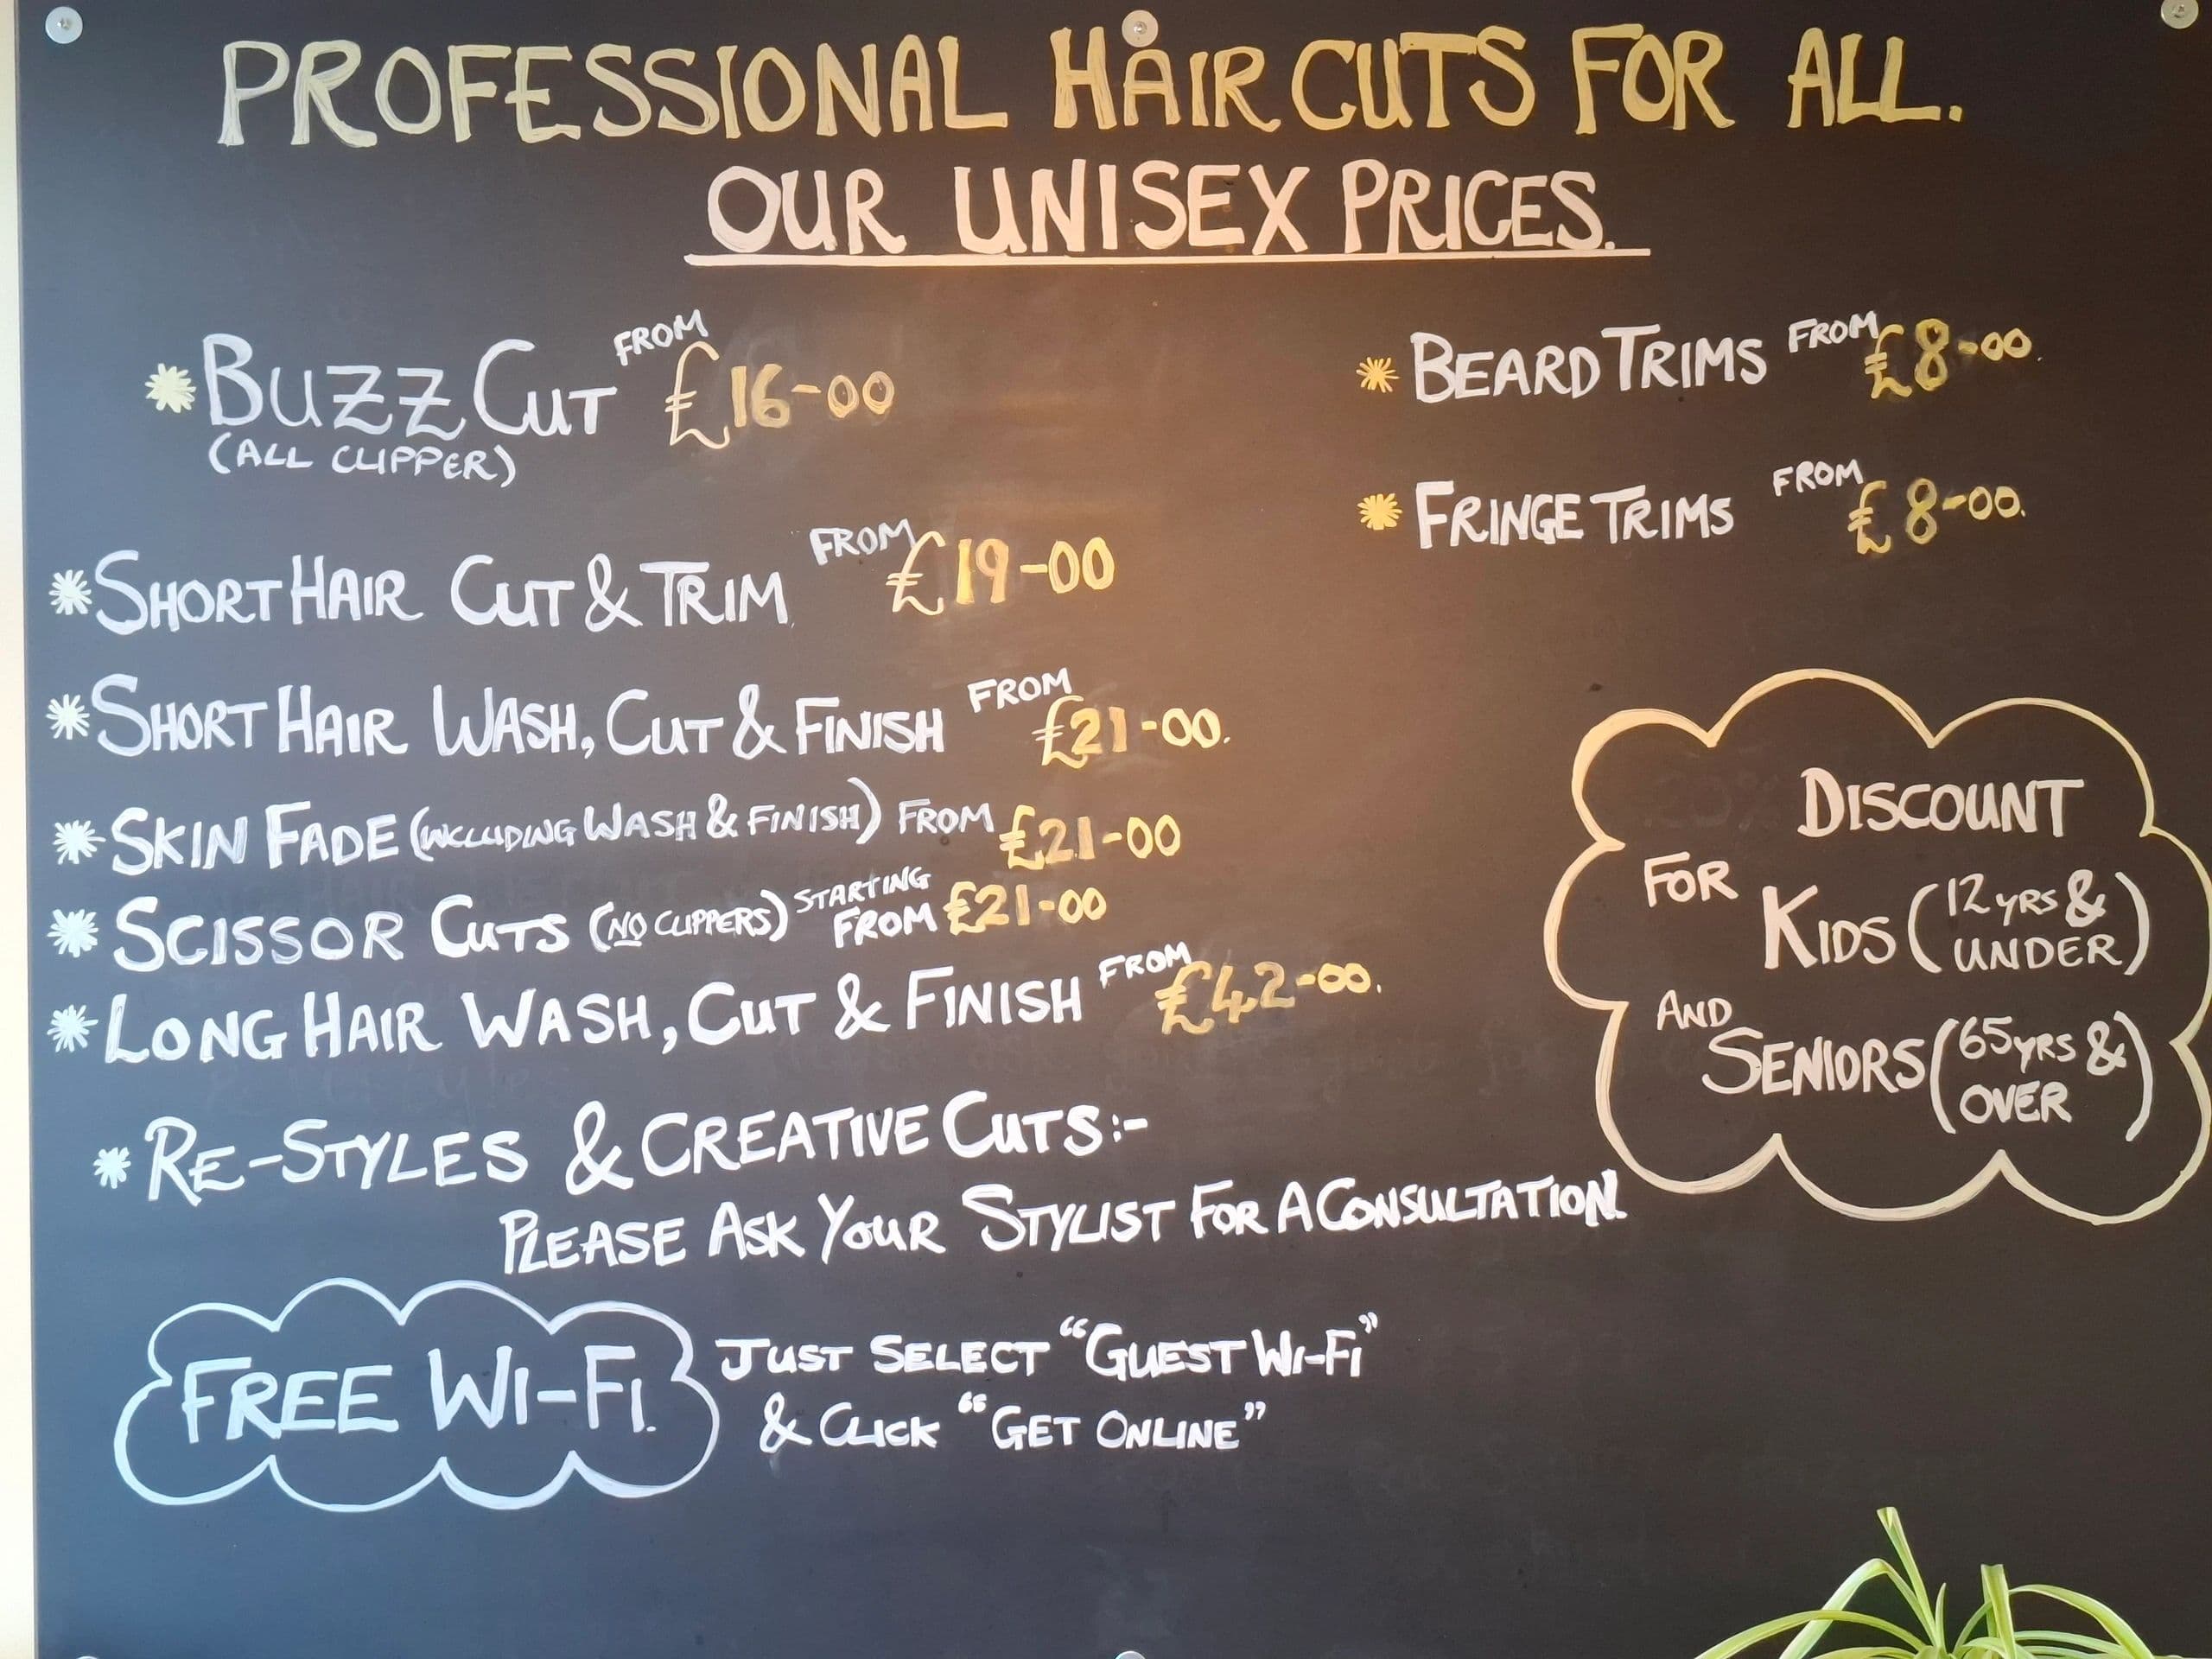 PROFESSIONAL HAIR CUTS FOR ALL.
OUR UNISEX PRICES.
* BUZZ CUT FROM £16-00
(ALL CLIPPER)
* SHORT HAIR CUT & TRIM FROM £19-00
* SHORT HAIR WASH, CUT & FINISH FROM £21-00.
* SKIN FADE (INCLUDING WASH & FINISH) FROM £21-00
* SCISSOR CUTS (NO CLIPPERS) STARTING FROM £21-00
* LONG HAIR WASH, CUT & FINISH FROM £42-00.
* RE-STYLES & CREATIVE CUTS:-
PLEASE ASK YOUR STYLIST FOR A CONSULTATION.
* BEARD TRIMS FROM £8-00.
* FRINGE TRIMS FROM £8-00.
DISCOUNT
FOR KIDS (12 YRS & UNDER)
AND SENIORS (65 YRS & OVER)
FREE WI-FI.
JUST SELECT "GUEST WI-FI"
& CLICK "GET ONLINE"